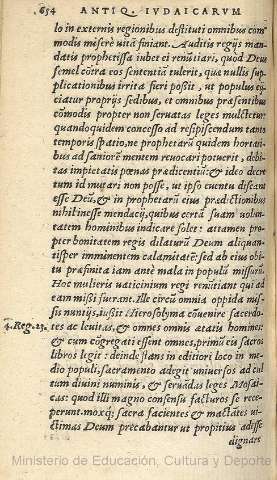 654 ANTIQ. IVDAICARVM
lo in externis regionibus destituti omnibus com
modis miserè uitā finiant. Auditis regijs man
datis prophetissa iubet ei renūtiari, quòd Deus
semel cōtra eos sententiā tulerit, quæ nullis sup
plicationibus irrita fieri poßit, ut populus eij
ciatur proprijs sedibus, & omnibus præsentibus
cōmodis propter non seruatas leges mulctetur:
quandoquidem concesso ad resipiscendum tanto
temporis spatio, ne prophetarū quidem hortati
bus ad saniorē mentem reuocari potuerit, debi-
tas impietatis pœnas prædicentiū: & ideo decre
tum id mutari non posse, ut ipso euentu discant
esse Deū, & in prophetarū eius prædictionibus
nihil inesse mendacij, quibus certā suam uolun-
tatem hominibus indicare solet: attamen pro-
pter bonitatem regis dilaturū Deum aliquan-
tisper imminentem calamitatē: sed ab eius obi-
tu præfinita iam ante mala in populū missurū.
Hoc mulieris uaticinium regi renūtiant qui ad
eam mißi fuerant. Ille circū omnia oppida mis-
sis nuntijs, iußit Hierosolyma cōuenire sacerdo-
4. Reg. 23. tes ac leuitas, & omnes omnis ætatis homines:
& cum cogregati essent omnes, primū eis sacros
libros legit: deinde stans in editiori loco in me-
dio populi, sacramento adegit uniuersos ad cul
tum diuini numinis, & seruādas leges Mosai-
cas: quod illi magno consensu facturos se rece-
perunt. moxq; sacra facientes & mactātes ui-
ctimas Deum precabantur ut propitius adesse
dignare
Ministerio de Educación, Cultura y Deporte